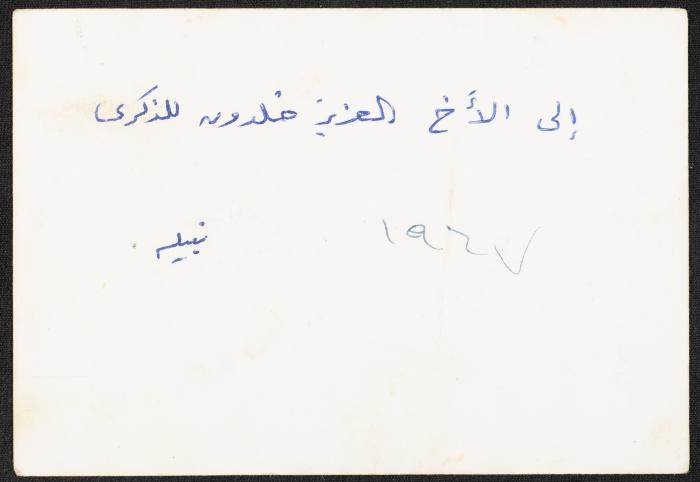 إلى الأخ العزيز خلدون للذكرى
١٩٦٧
نبيل